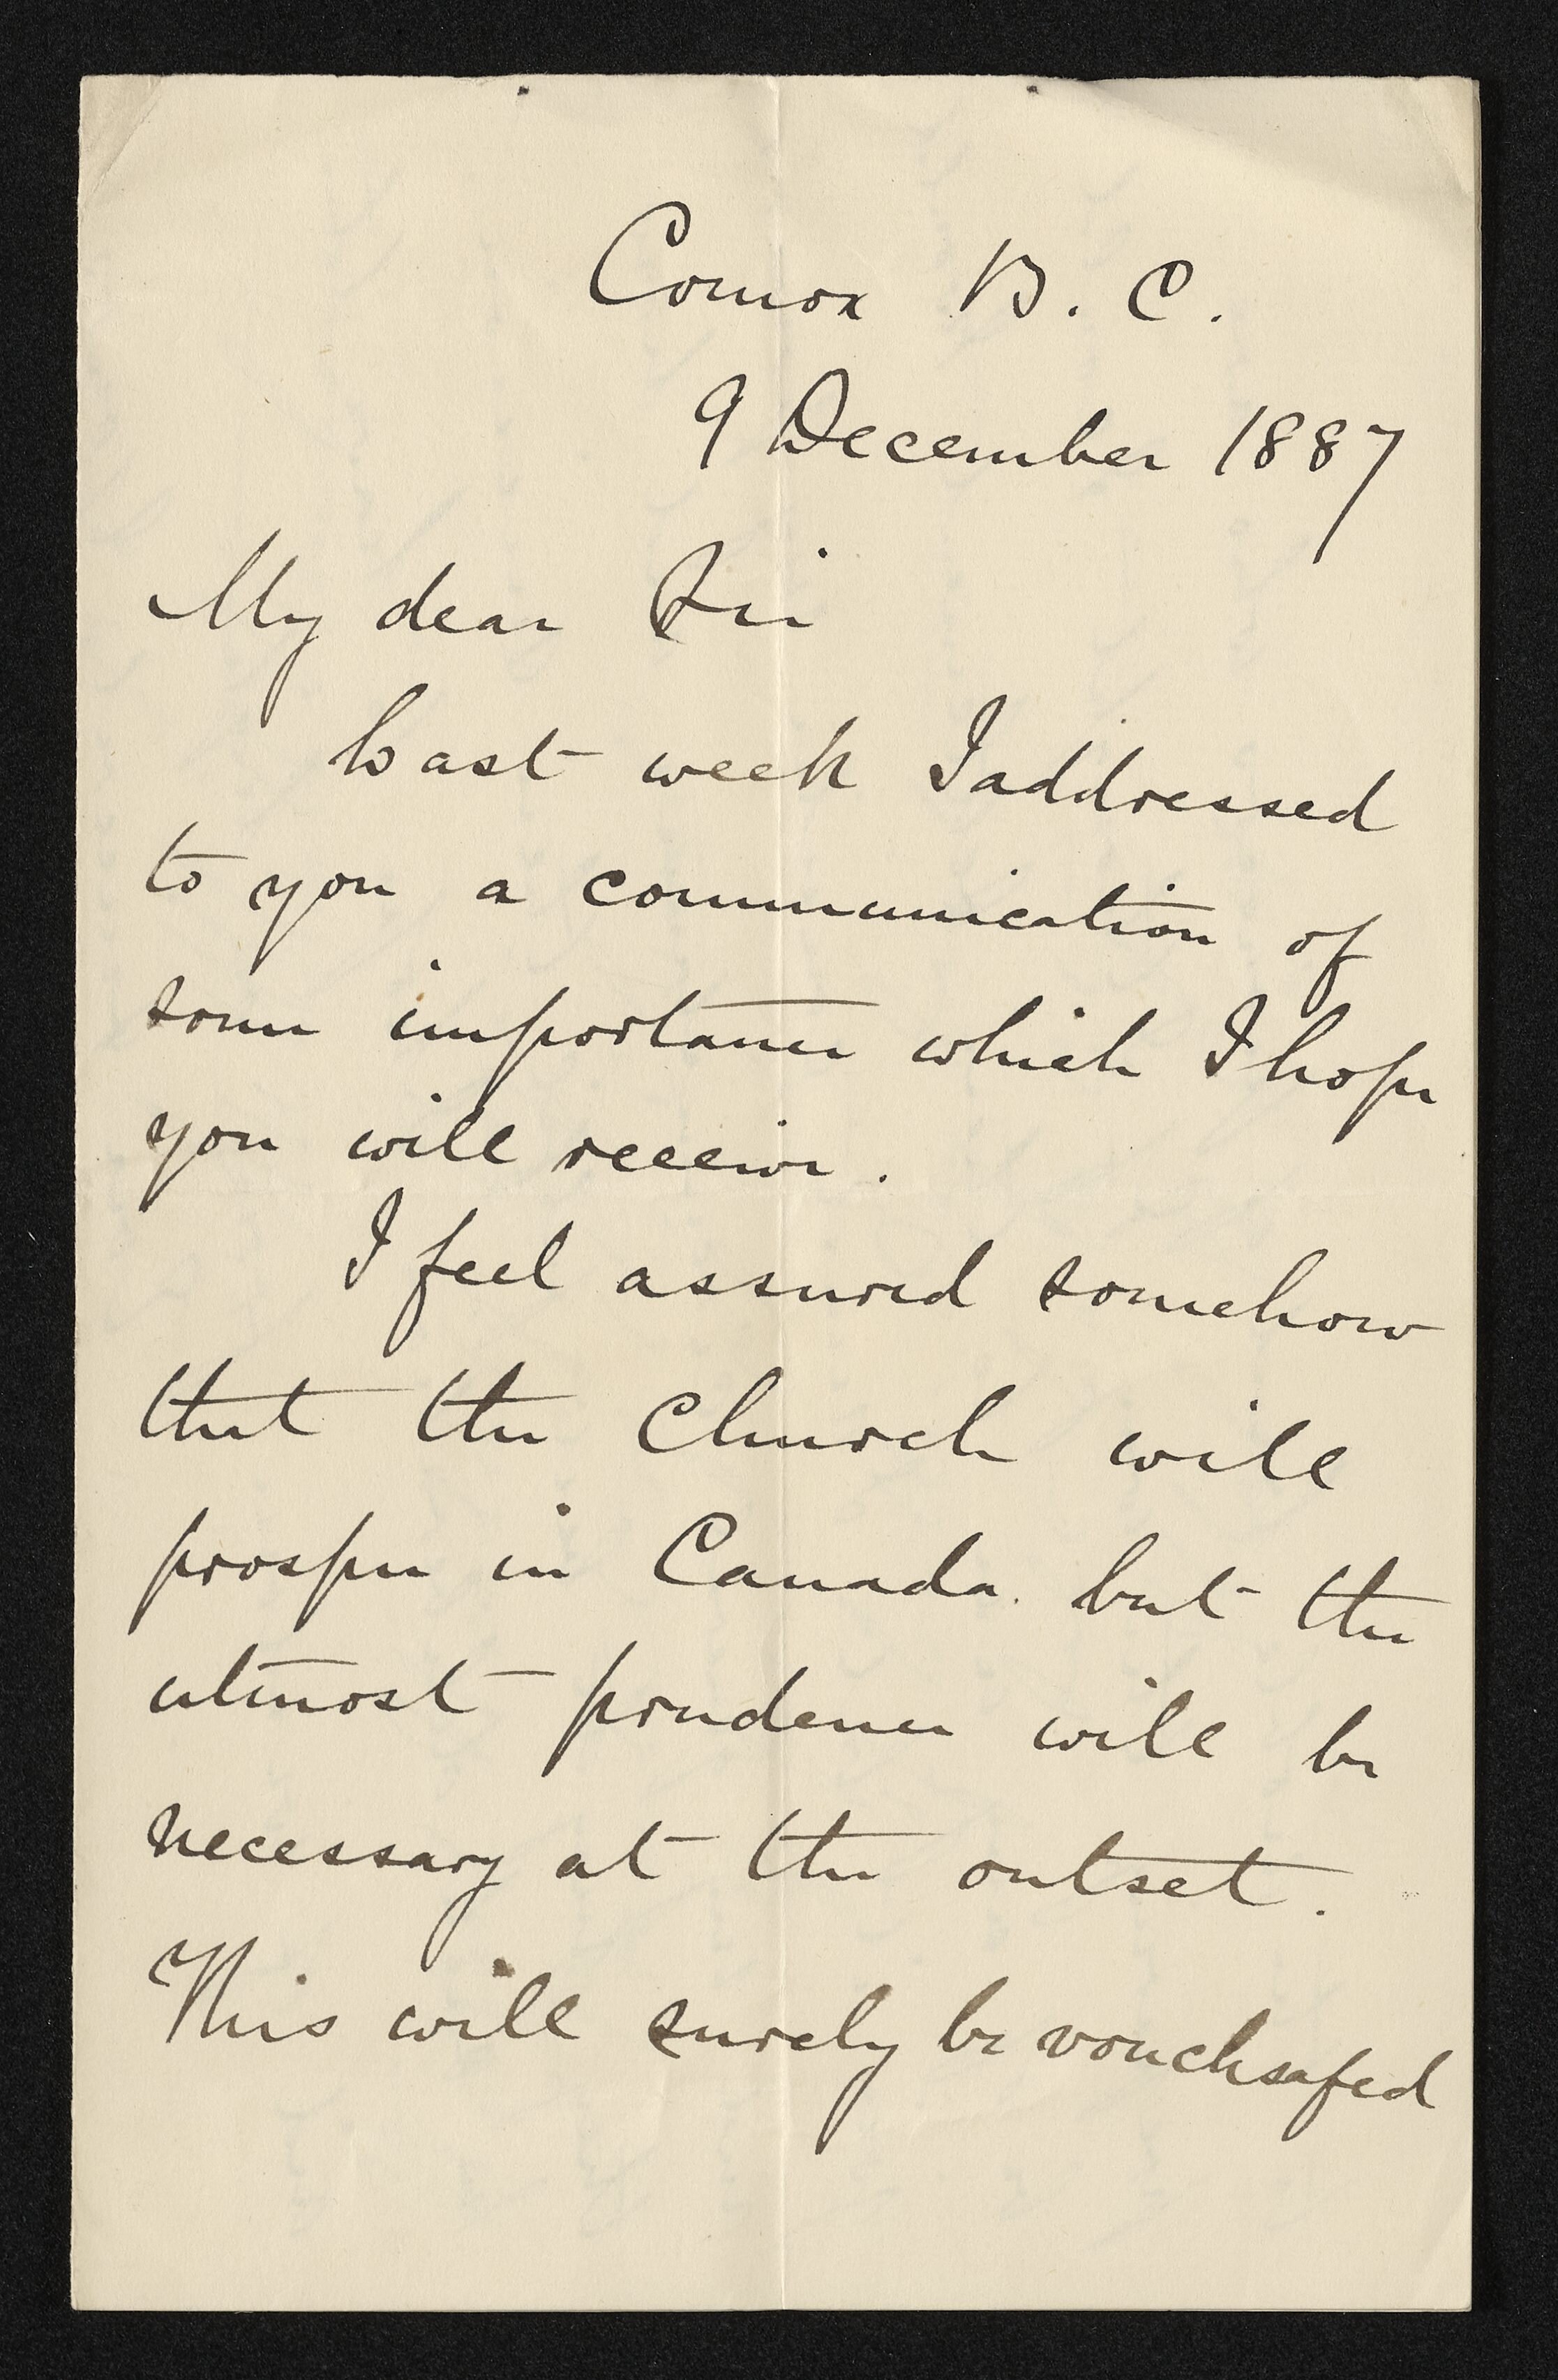 Comox B. C.
9 December 1887
My dear Sir
Last week I addressed
to you a communication of
some importance which I hope
you will receive.
I feel assured somehow
that the Church will
prosper in Canada. but the
utmost prudence will be
necessary at the outset.
This will surely be vouchsafed